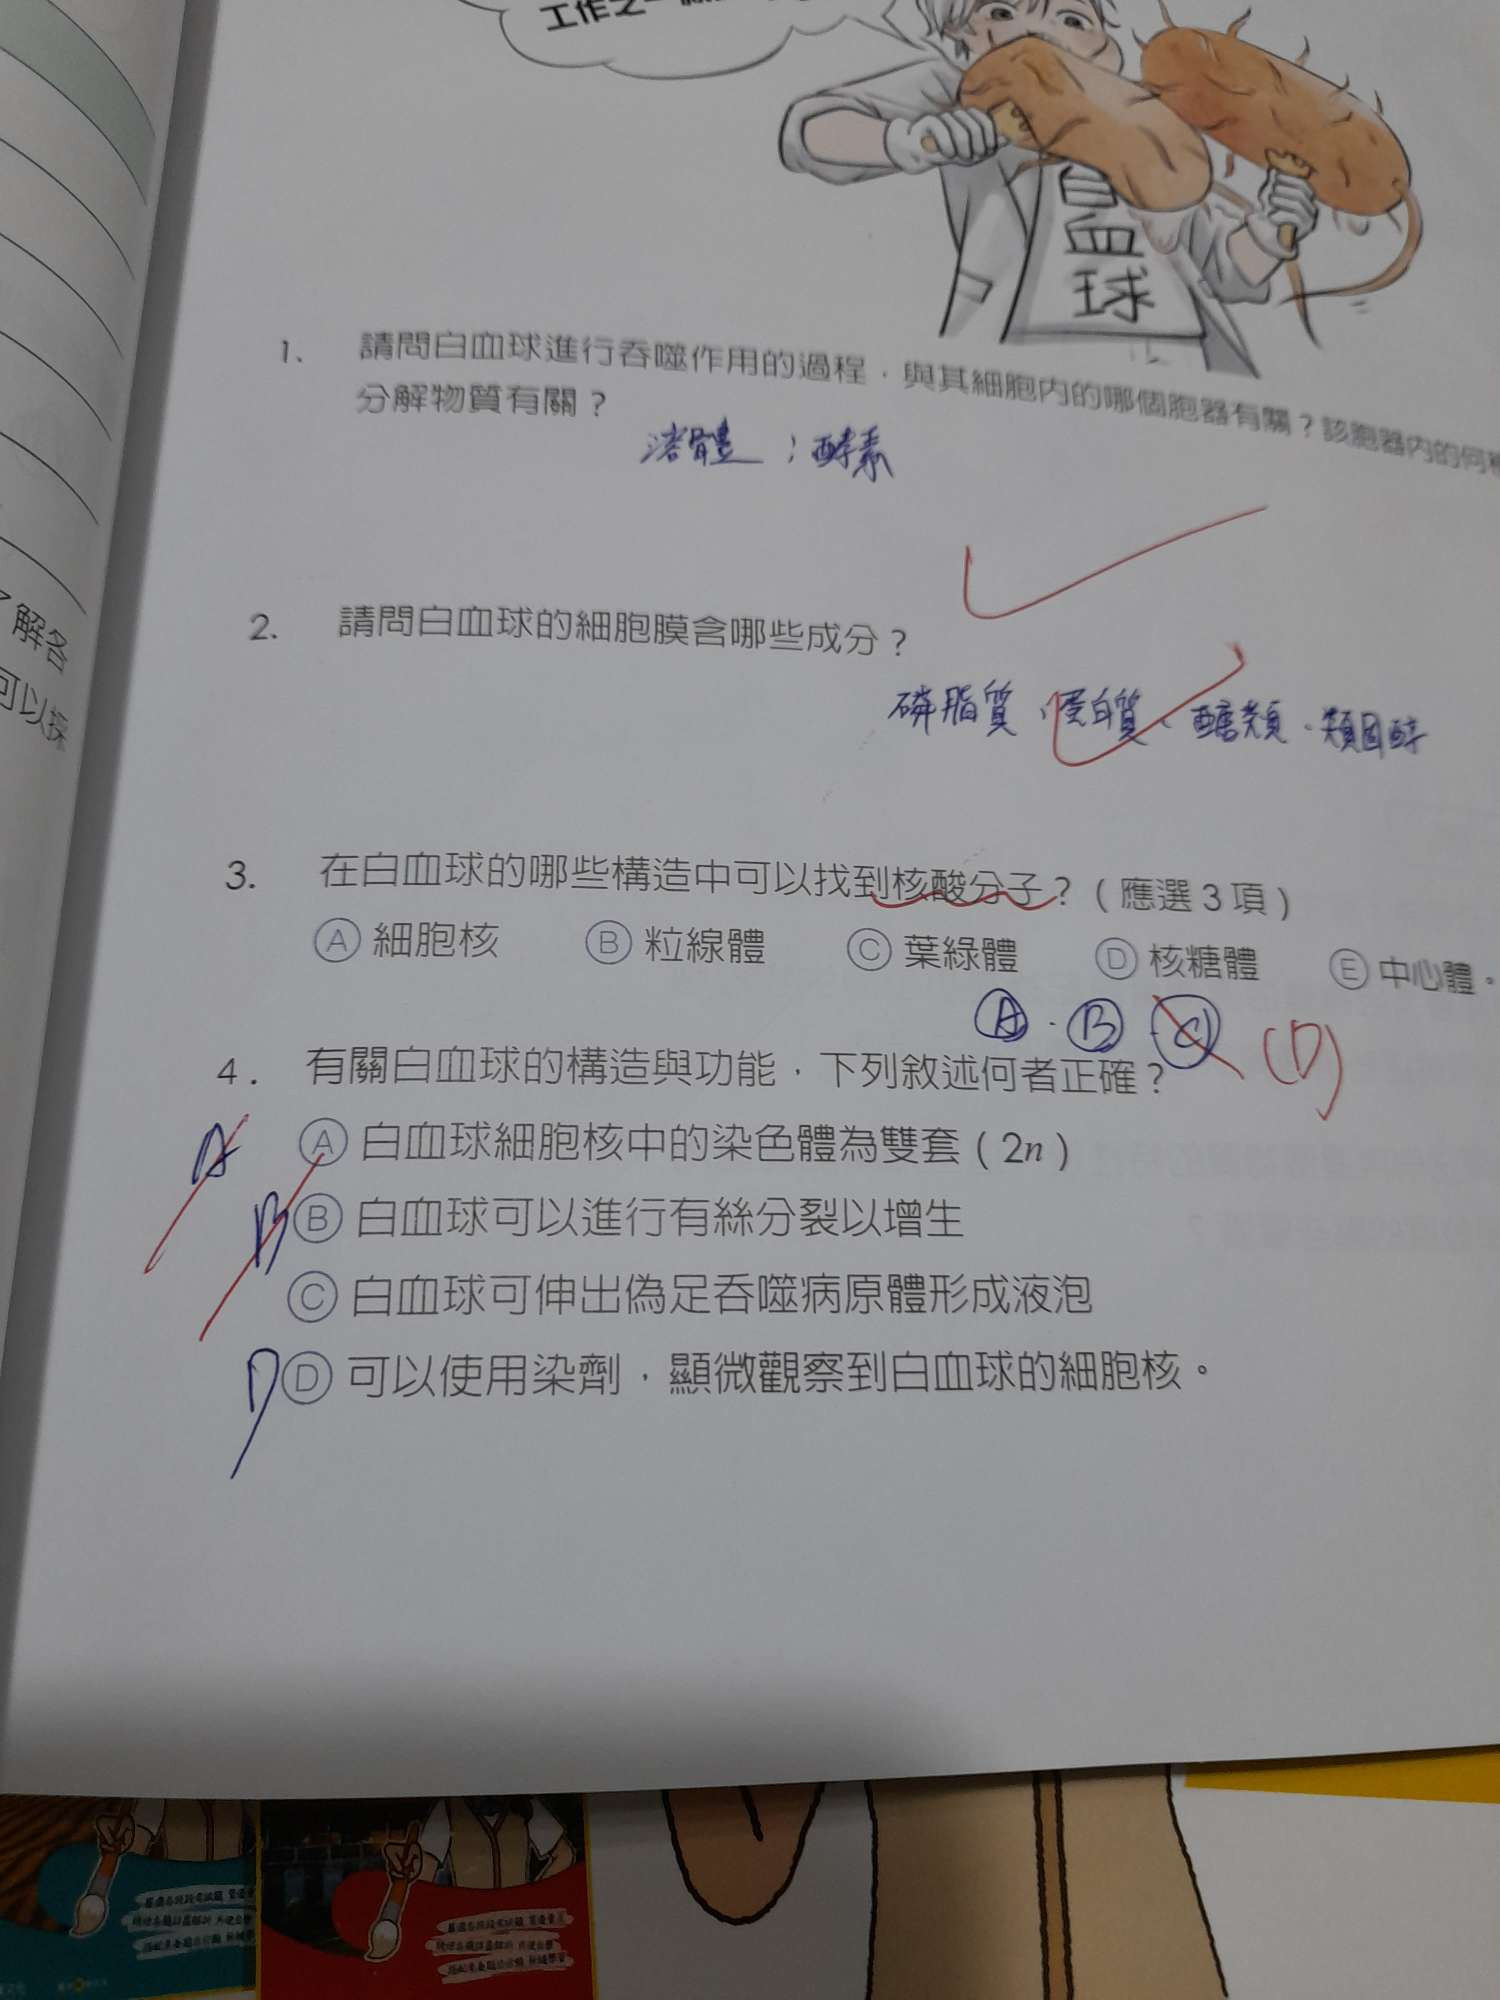 工作之一
白血球
1. 請問白血球進行吞噬作用的過程，與其細胞內的哪個胞器有關？該胞器內的何種
分解物質有關？
溶體；酵素
2. 請問白血球的細胞膜含哪些成分？
磷脂質、蛋白質、醣類、類固醇
3. 在白血球的哪些構造中可以找到核酸分子？（應選3項）
Ⓐ 細胞核 Ⓑ 粒線體 Ⓒ 葉綠體 Ⓓ 核糖體 Ⓔ 中心體。
Ⓐ．Ⓑ Ⓒ (D)
4. 有關白血球的構造與功能，下列敘述何者正確？
A Ⓐ 白血球細胞核中的染色體為雙套（2n）
B Ⓑ 白血球可以進行有絲分裂以增生
Ⓒ 白血球可伸出偽足吞噬病原體形成液泡
D Ⓓ 可以使用染劑，顯微觀察到白血球的細胞核。
了解各
可以探